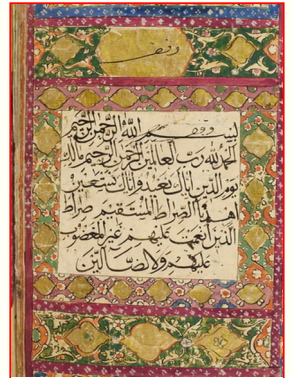 وقف
وقف
بسم الله الرحمن الرحيم
الحمد لله رب العالمين الرحمن الرحيم مالك
يوم الدين اياك نعبد واياك نستعين
اهدنا الصراط المستقيم صراط
الذين انعمت عليهم غير المغضوب
عليهم ولا الضالين